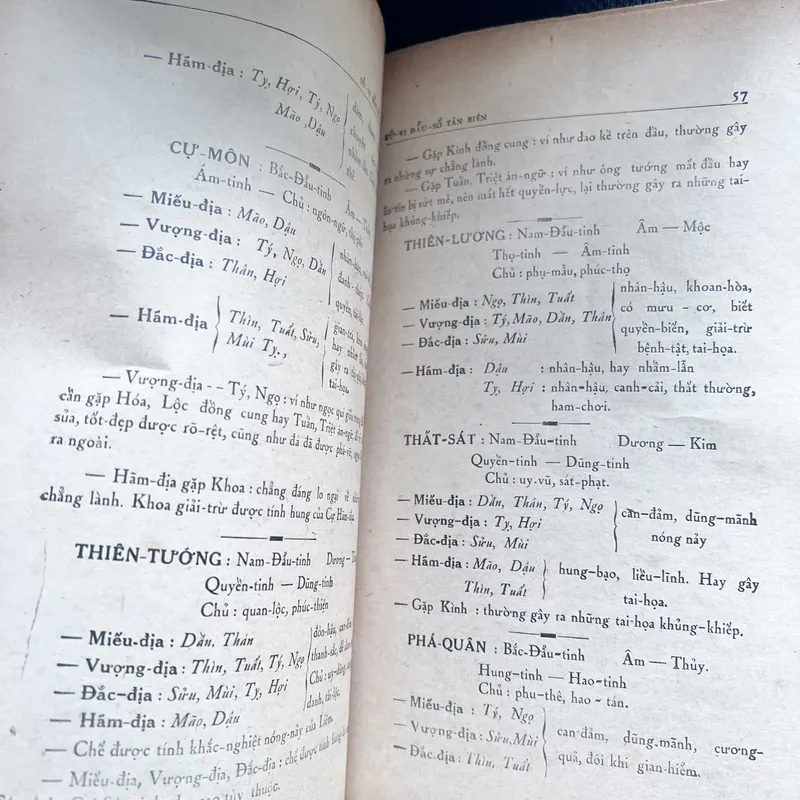 — Hãm-địa : Tỵ, Hợi, Tý, Ngọ
Mão, Dậu
CỰ-MÔN : Bắc-Đẩu-tinh Âm —
Ám-tinh — Chủ : ngôn-ngữ,
— Miếu-địa : Mão, Dậu
— Vượng-địa : Tý, Ngọ, Dần
— Đắc-địa : Thân, Hợi
— Hãm-địa Thìn, Tuất, Sửu,
Mùi Tỵ.,
gian-trá,
hay
gây ra
tai-họa.
— Vượng-địa - - Tý, Ngọ : ví như ngọc quí
cần gặp Hóa, Lộc đồng cung hay Tuần, Triệt án-ngữ,
sủa, tốt-đẹp được rõ-rệt, cũng như đá đã được phá-vỡ,
ra ngoài.
— Hãm-địa gặp Khoa : chẳng đáng lo ngại về
chẳng lành. Khoa giải-trừ được tính hung của Cự Hãm-địa.
THIÊN-TƯỚNG : Nam-Đẩu-tinh Dương —
Quyền-tinh — Dũng-tinh
Chủ : quan-lộc, phúc-thiện
— Miếu-địa : Dần, Thân
— Vượng-địa : Thìn, Tuất, Tý, Ngọ
— Đắc-địa : Sửu, Mùi, Tỵ, Hợi
đôn-hậu,
thanh-sắc,
Chủ : uy-dũng,
danh, tài-lộc.
— Hãm-địa : Mão, Dậu
— Chế được tính khắc-nghiệt nóng-nảy của Liêm.
— Miếu-địa, Vượng-địa, Đắc-địa : chế được tính
tùy thuộc.
57
TỬ-VI ĐẨU-SỐ TÂN BIÊN
— Gặp Kình đồng cung : ví như dao kề trên đầu, thường gây
ra những sự chẳng lành.
— Gặp Tuần, Triệt án-ngữ : ví như ông tướng mất đầu hay
ấn-tín bị sứt mẻ, nên mất hết quyền-lực, lại thường gây ra những tai-
họa khủng-khiếp.
THIÊN-LƯƠNG : Nam-Đẩu-tinh Âm — Mộc
Thọ-tinh — Âm-tinh
Chủ : phụ-mẫu, phúc-thọ
— Miếu-địa : Ngọ, Thìn, Tuất
— Vượng-địa : Tý, Mão, Dần, Thân
— Đắc-địa : Sửu, Mùi
nhân-hậu, khoan-hòa,
có mưu - cơ, biết
quyền-biến, giải-trừ
bệnh-tật, tai-họa.
— Hãm-địa : Dậu : nhân-hậu, hay nhầm-lẫn
Tỵ, Hợi : nhân-hậu, canh-cải, thất thường,
ham-chơi.
THẤT-SÁT : Nam-Đẩu-tinh Dương — Kim
Quyền-tinh — Dũng-tinh
Chủ : uy-vũ, sát-phạt.
— Miếu-địa : Dần, Thân, Tý, Ngọ
— Vượng-địa : Tỵ, Hợi
— Đắc-địa : Sửu, Mùi
can-đảm, dũng-mãnh
nóng nảy
— Hãm-địa : Mão, Dậu
Thìn, Tuất
hung-bạo, liều-lĩnh. Hay gây
tai-họa.
— Gặp Kình : thường gây ra những tai-họa khủng-khiếp.
PHÁ-QUÂN : Bắc-Đẩu-tinh Âm — Thủy.
Hung-tinh — Hao-tinh
Chủ : phu-thê, hao - tán.
— Miếu-địa : Tý, Ngọ
— Vượng-địa : Sửu, Mùi
— Đắc-địa : Thìn, Tuất
can-đảm, dũng-mãnh, cương-
quả, đôi khi gian-hiểm.